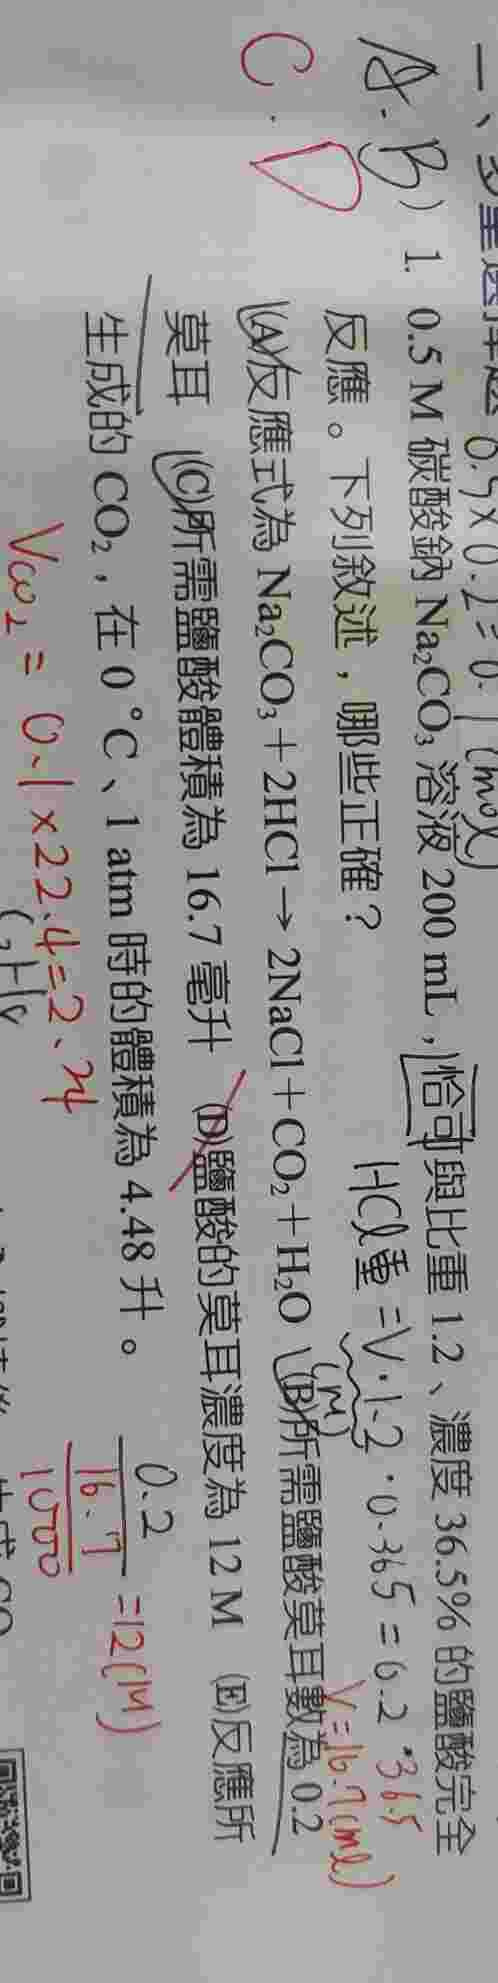 一、多重選擇題 0.5×0.2=0.1(mol)
A.B) 1. 0.5 M 碳酸鈉 Na₂CO₃ 溶液 200 mL，恰可與比重 1.2、濃度 36.5% 的鹽酸完全
C.D
反應。下列敘述，哪些正確？ HCl重=V·1.2·0.365=0.2·36.5
(M) V=16.7(ml)
(A)反應式為 Na₂CO₃＋2HCl→2NaCl＋CO₂＋H₂O (B)所需鹽酸莫耳數為 0.2
莫耳 (C)所需鹽酸體積為 16.7 毫升 (D)鹽酸的莫耳濃度為 12 M (E)反應所
生成的 CO₂，在 0 °C、1 atm 時的體積為 4.48 升。
0.2
16.7
1000
=12(M)
Vco₂=0.1×22.4=2.24